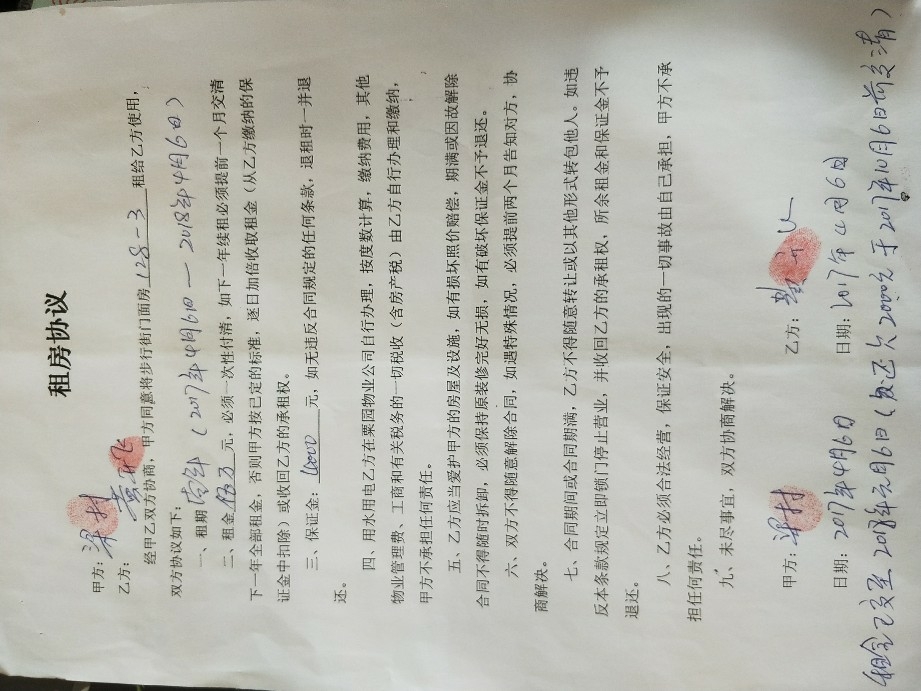 租房协议
甲方：梁村
乙方：
经甲乙双方协商，甲方同意将步行街门面房 1-8-3 租给乙方使用，
双方协议如下：
一、租期 （2017年4月6日—2018年4月6日）
二、租金 万 元，必须一次性付清，如下一年续租必须提前一个月交清
下一年全部租金，否则甲方按已定的标准，逐日加倍收取租金（从乙方缴纳的保
证金中扣除）或收回乙方的承租权。
三、保证金：4000 元，如无违反合同规定的任何条款，退租时一并退
还。
四、用水用电乙方在栗园物业公司自行办理，按度数计算，缴纳费用，其他
物业管理费、工商和有关税务的一切税收（含房产税）由乙方自行办理和缴纳，
甲方不承担任何责任。
五、乙方应当爱护甲方的房屋及设施，如有损坏照价赔偿，期满或因故解除
合同不得随时拆卸，必须保持原装修完好无损，如有破坏保证金不予退还。
六、双方不得随意解除合同，如遇特殊情况，必须提前两个月告知对方，协
商解决。
七、合同期间或合同期满，乙方不得随意转让或以其他形式转包他人。如违
反本条款规定立即锁门停止营业，并收回乙方的承租权，所余租金和保证金不予
退还。
八、乙方必须合法经营，保证安全，出现的一切事故由自己承担，甲方不承
担任何责任。
九、未尽事宜，双方协商解决。
甲方：梁村 乙方：
日期：2017年4月6日 日期：2017年4月6日
（租金已交至2018年元月6日（欠 20000元于2017年10月6日前交清）